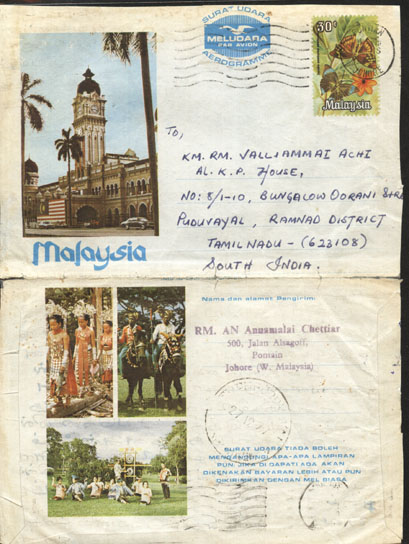 SURAT UDARA
MELUDARA
PAR AVION
AEROGRAMME
30c
Malaysia
To,
KM. RM. VALLIAMMAI ACHI
AL. K. P. HOUSE,
NO: 8/1-10, BUNGALOW OORANI STRE
PUDUVAYAL, RAMNAD DISTRICT
TAMILNADU - (623108)
SOUTH INDIA.
Malaysia
Nama dan alamat Pengirim:
RM. AN Annamalai Chettiar
500, Jalan Alsagoff,
Pontain
Johore (W. Malaysia)
SURAT UDARA TIADA BOLEH
MENGANDUNGI APA-APA LAMPIRAN
PUN. JIKA DIDAPATI ADA AKAN
DIKENAKAN BAYARAN LEBIH ATAU PUN
DIKIRIMKAN DENGAN MEL BIASA